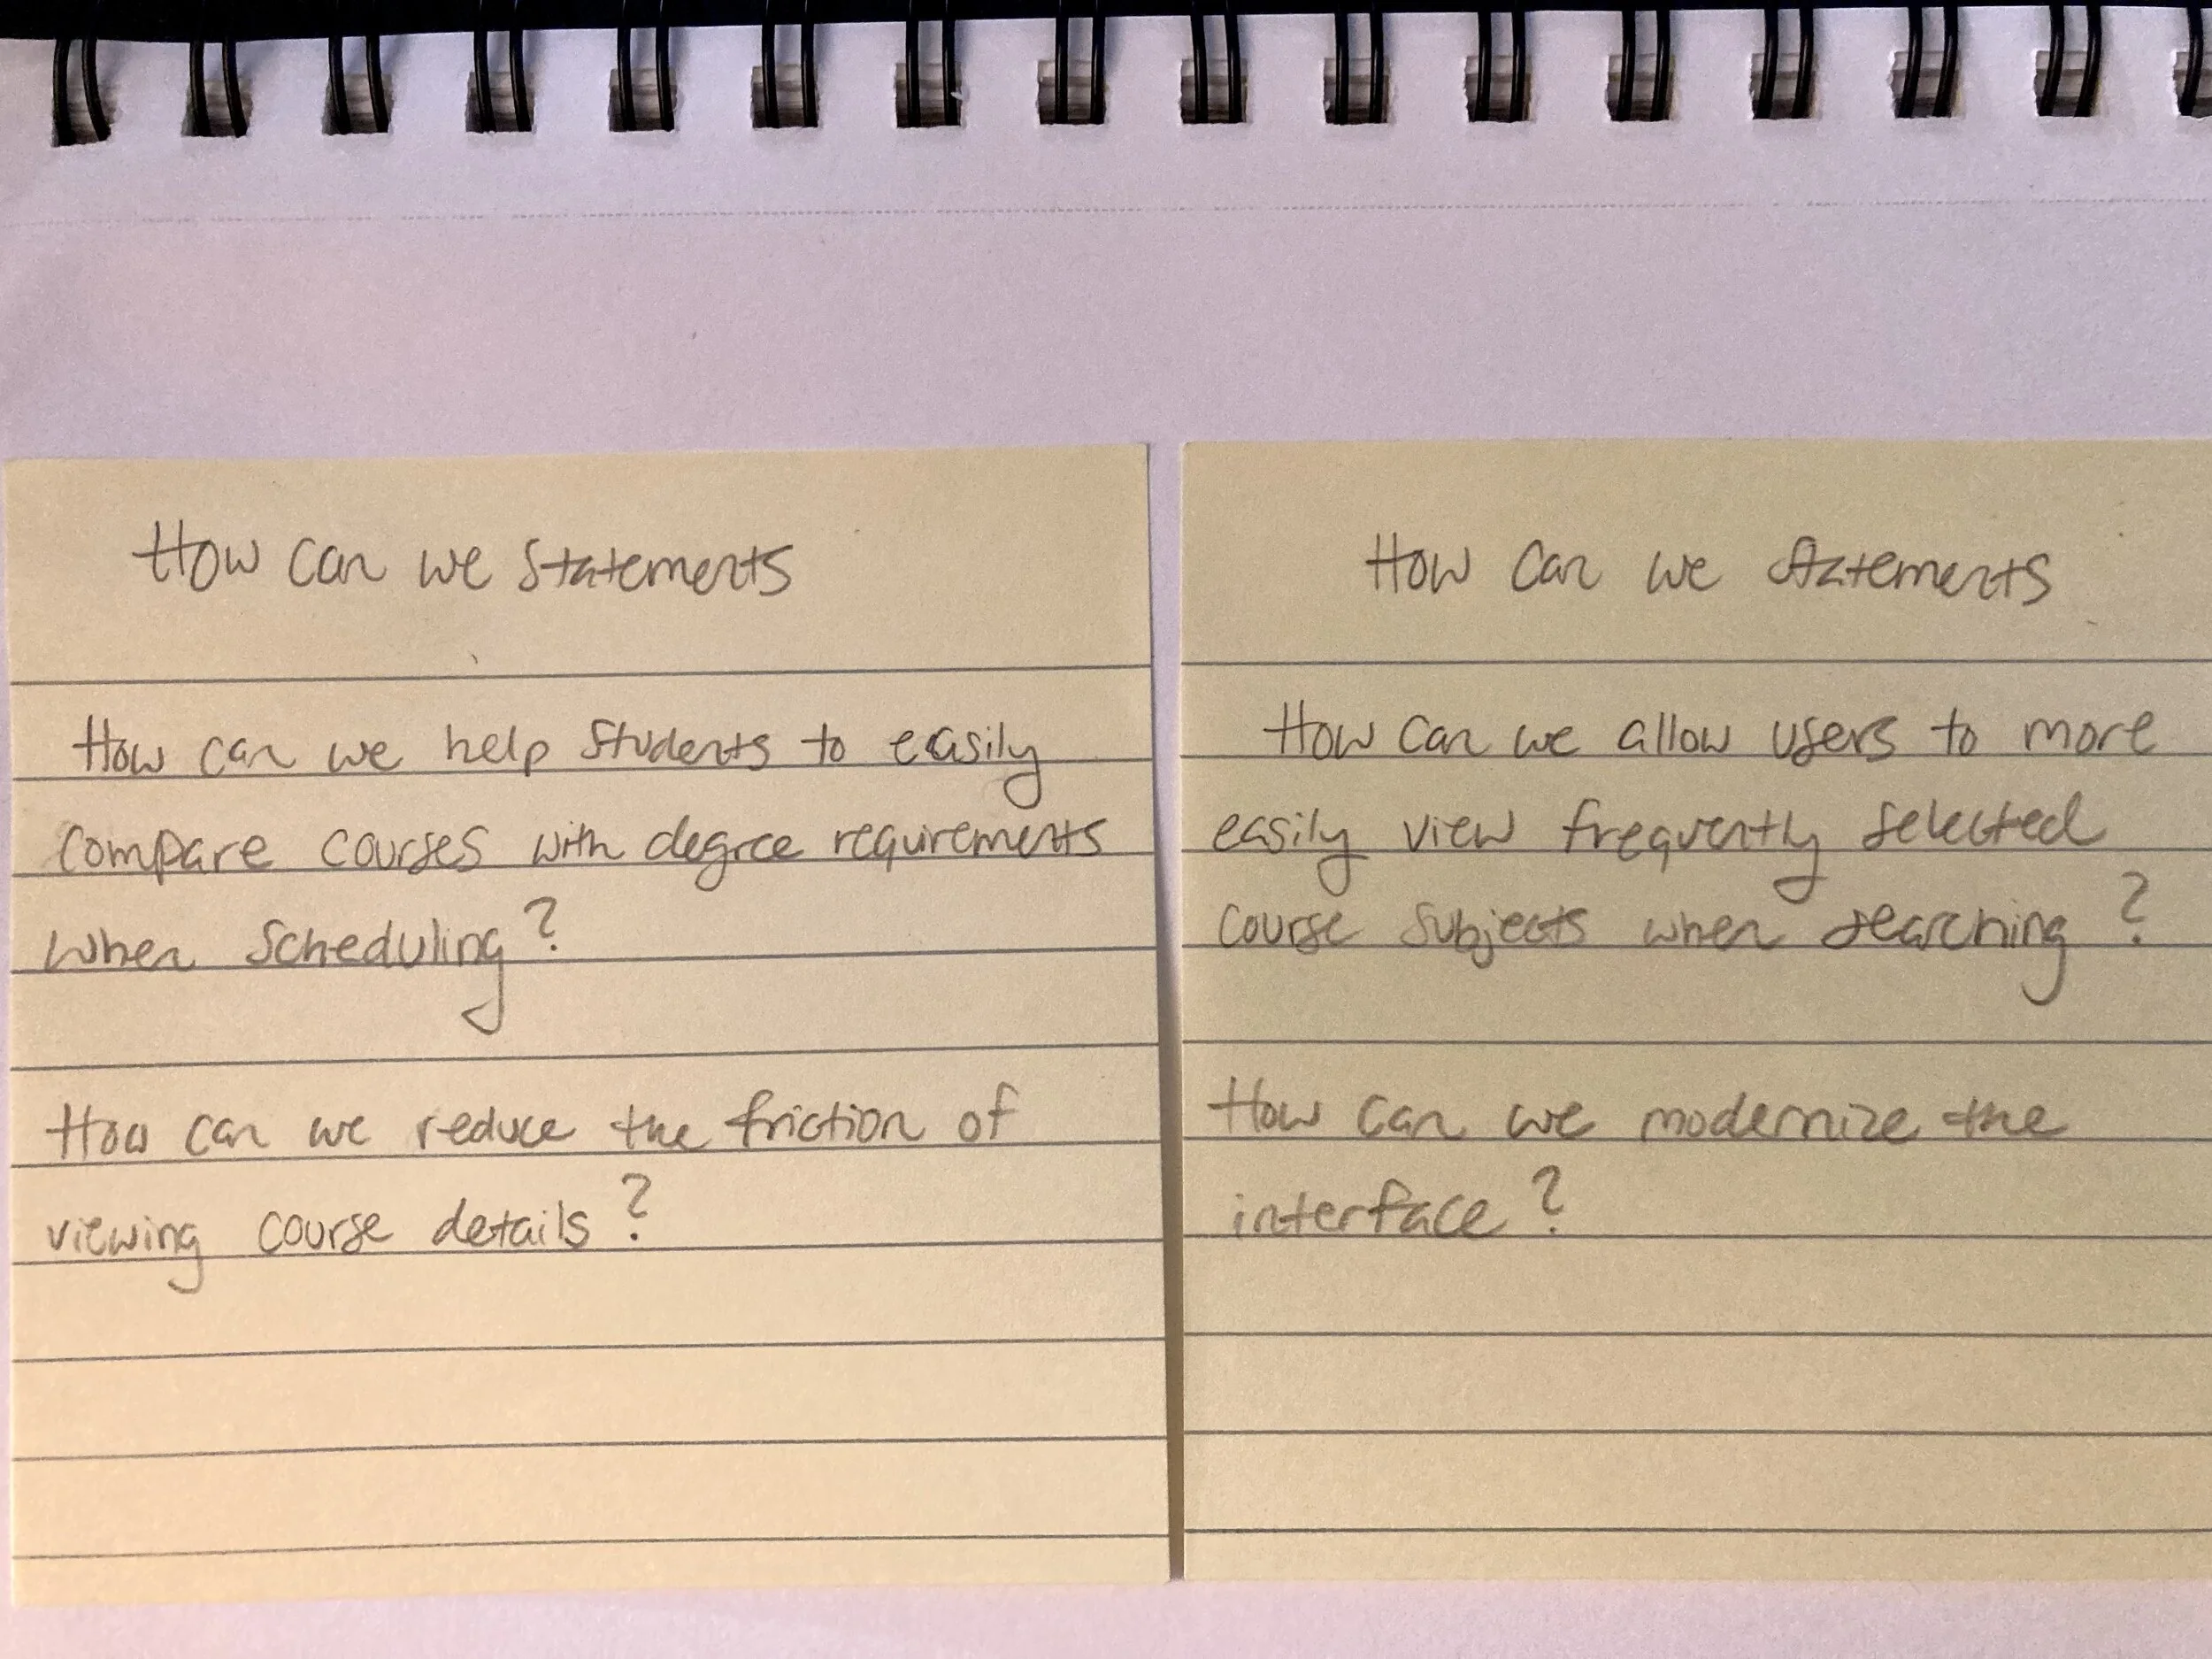 How can we statements
How can we help students to easily
compare courses with degree requirements
when scheduling?
How can we reduce the friction of
viewing course details?
How can we statements
How can we allow users to more
easily view frequently selected
course subjects when searching?
How can we modernize the
interface?